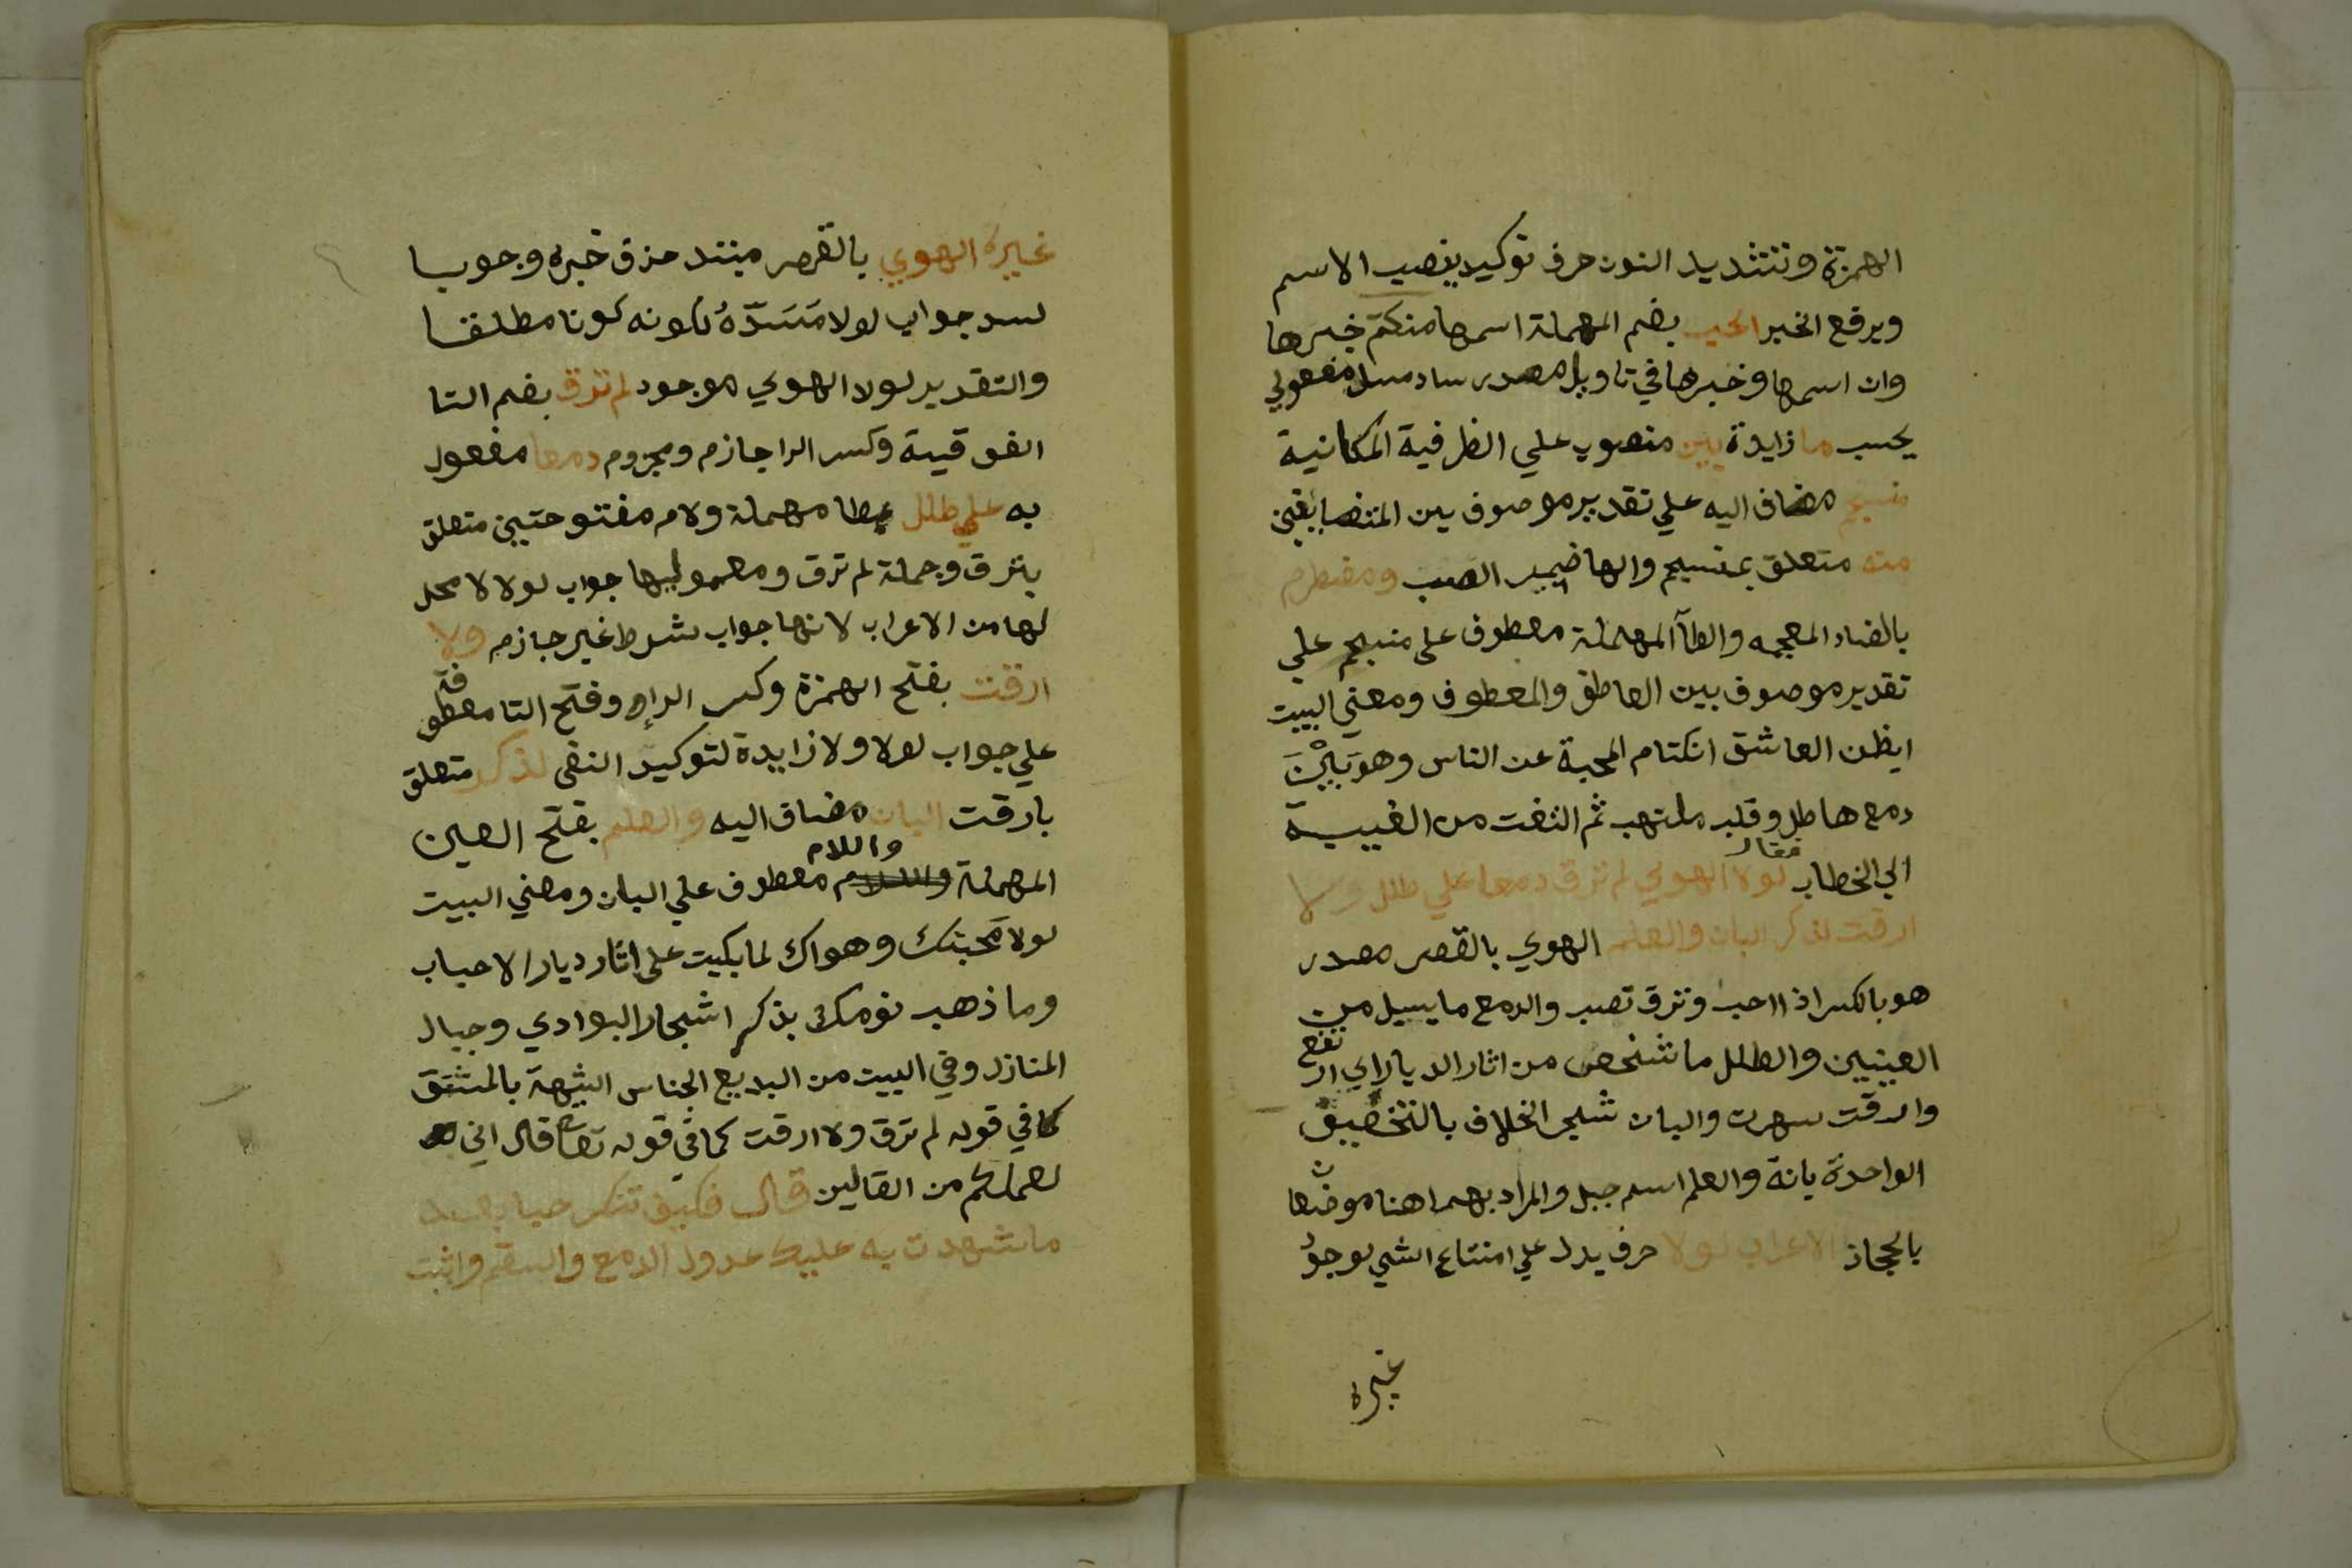 الهمزة وتشديد النون حرف توكيد ينصب الاسم
ويرفع الخبر الحب بضم المهملة اسمها منكتم خبرها
وان اسمها وخبرها في تاويل مصدر ساد مسد مفعولي
يحسب ما زايدة بين منصوب علي الظرفية المكانية
منسجم مضاف اليه علي تقدير موصوف بين المتضايفين
منه متعلق بمنسجم والها ضمير الصب ومضطرم
بالضاد المعجمه والطاآ المهملة معطوف على منسجم علي
تقدير موصوف بين العاطف والمعطوف ومعني البيت
ايظن العاشق انكتام المحبة عن الناس وهو بَيْنَ
دمع هاطل وقلب ملتهب ثم التفت من الغيبة
الي الخطاب فقال لولا الهوي لم ترق دمعا علي طلل ولا
ارقت لذكر البان والعلم الهوي بالقصر مصدر
هو بالكسر اذا احب وترق تصب والدمع ما يسيل من
العينين والطلل ما شخص من اثار الديار اي ارتفع
وارقت سهرت والبان شجر الخلاف بالتخفيف
الواحدة بانة والعلم اسم جبل والمراد بهما هنا موضعان
بالحجاز الاعراب لولا حرف يدل علي امتناع الشي لوجود
غيره
غيره الهوي بالقصر مبتدا حذف خبره وجوبا
لسد جواب لولا مَسَدّهُ لكونه كونا مطلقا
والتقدير لولا الهوي موجود لم ترق بضم التا
الفوقية وكسر الرا جازم ومجزوم دمعا مفعول
به علي طلل بطا مهملة ولام مفتوحتين متعلق
بترق وجملة لم ترق ومعموليها جواب لولا لا محل
لها من الاعراب لانها جواب شرط غير جازم ولا
ارقت بفتح الهمزة وكسر الراء وفتح التا معطوفة
علي جواب لولا ولا زايدة لتوكيد النفي لذكر متعلق
بارقت البان مضاف اليه والعلم بفتح العين
المهملة واللام معطوف علي البان ومعني البيت
لولا مَحبتك وهواك لما بكيت علي اثار ديار الاحباب
وما ذهب نومك بذكر اشجار البوادي وجبال
المنازل وفي البيت من البديع الجناس الشبهة بالمشتق
كما في قوله لم ترق ولا ارقت كما في قوله تعا قال اني
لعملكم من القالين قال فكيف تنكر حبا بعد
ما شهدت به عليك عدول الدمع والسقم واثبت